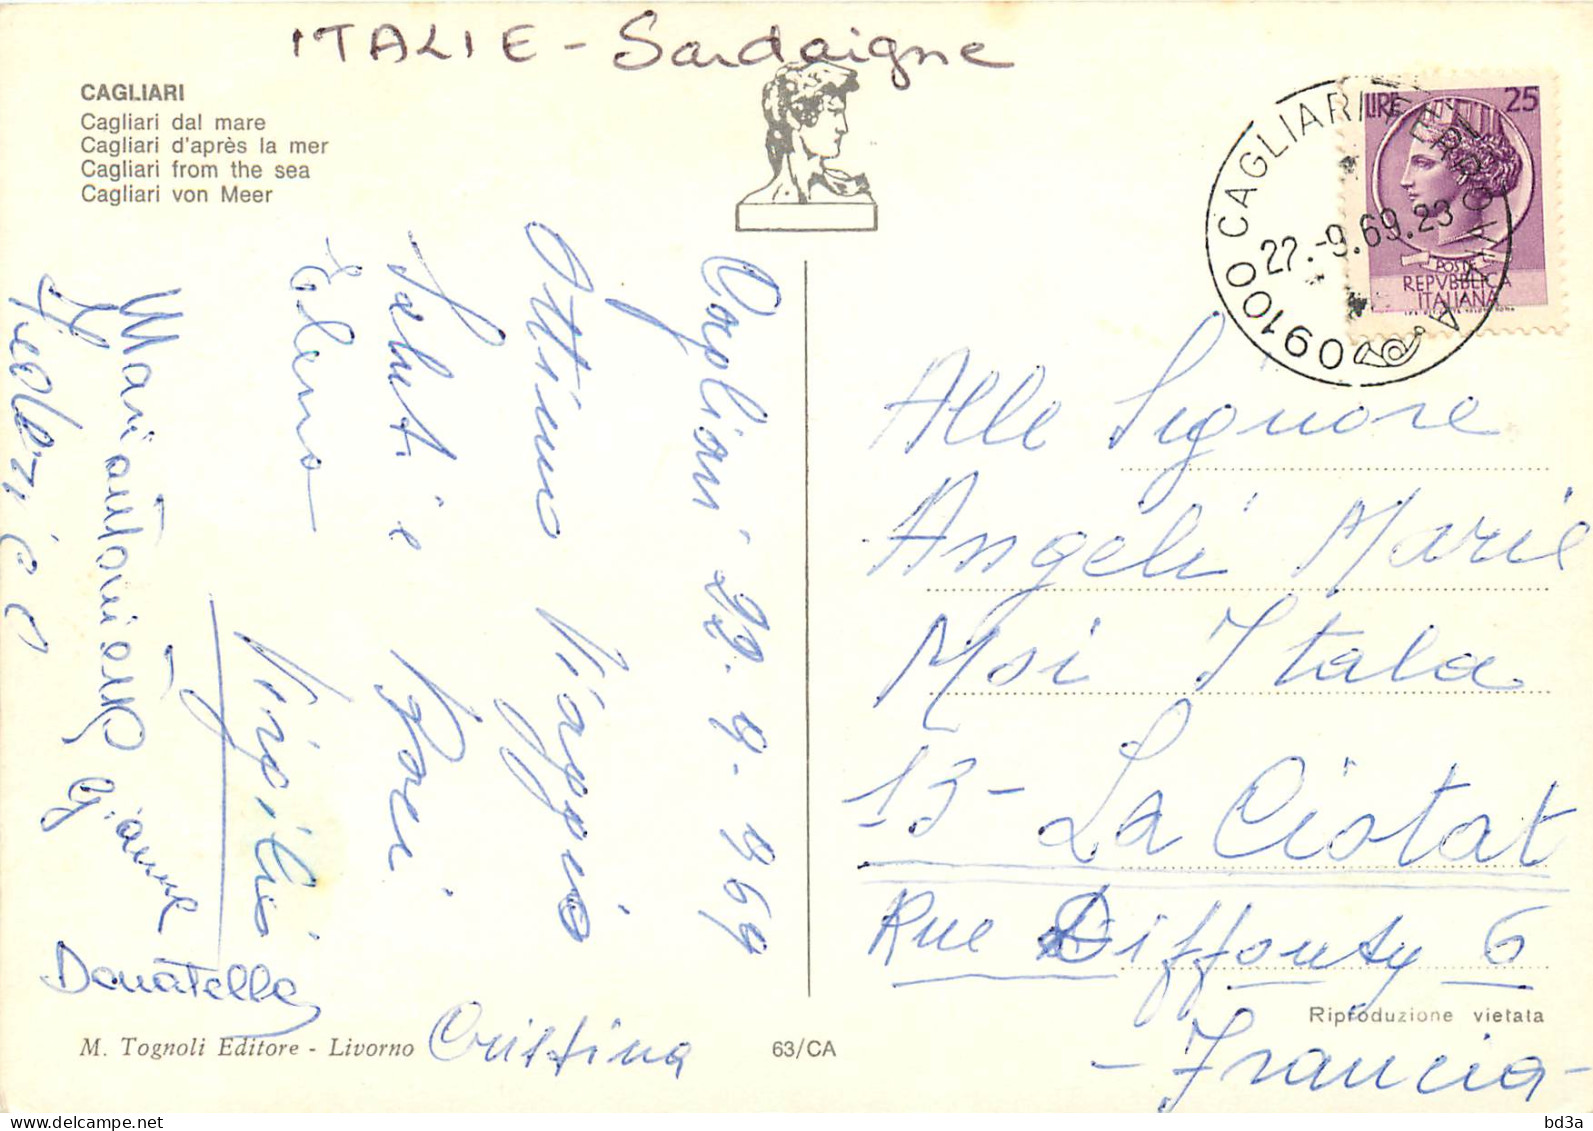 ITALIE - Sardaigne
CAGLIARI
Cagliari dal mare
Cagliari d'après la mer
Cagliari from the sea
Cagliari von Meer
LIRE 25
POSTE
REPVBBLICA
ITALIANA
09100 CAGLIARI FERROVIA A.
27.-9.69.23
Cagliari 22.9.969
Ottimo Viaggio
Saluti e Baci
Virgilio
Mariantonietta
Gianna
Donatella
Cristina
Alle Signore
Angeli Marie
Moi Itala
13- La Ciotat
Rue 6
- Francia -
M. Tognoli Editore - Livorno
63/CA
Riproduzione vietata
bd3a